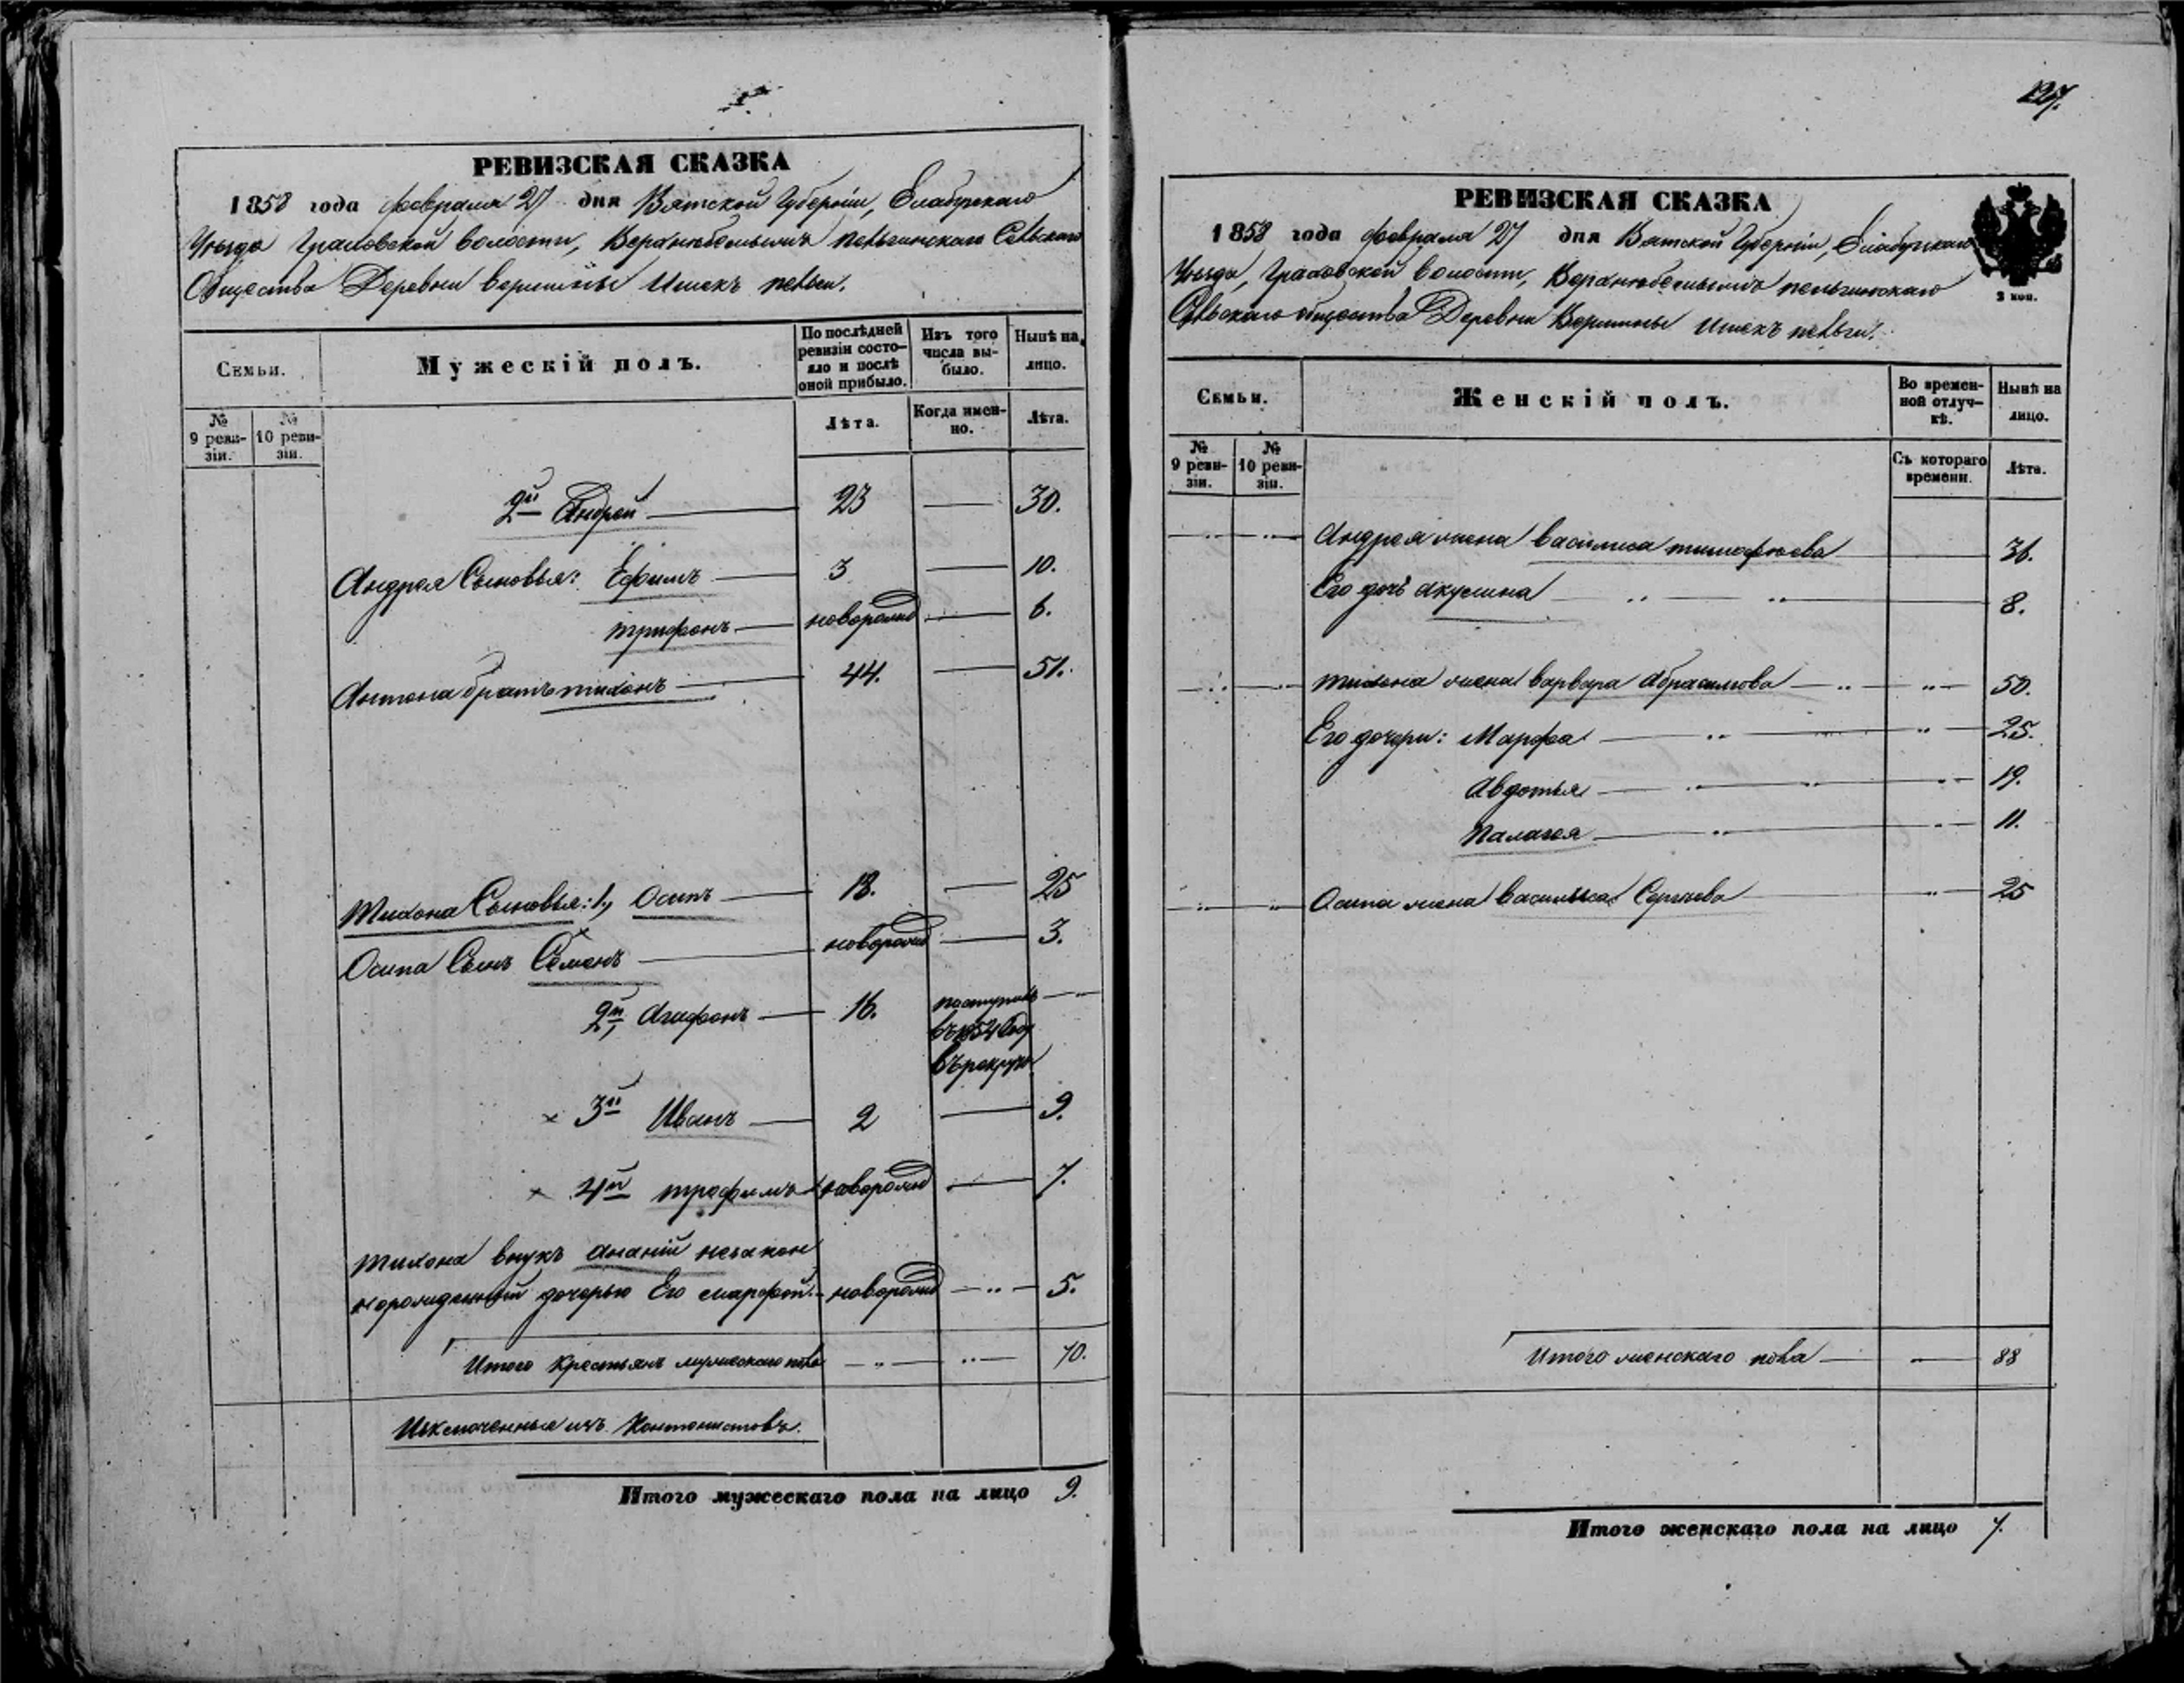 РЕВИЗСКАЯ СКАЗКА
1858 года февраля 27 дня Вятской Губерніи, Елабужскаго
Уѣзда Граховской волости, Пельгинскаго Сельскаго
Общества Деревни вершины Ишекъ пельги.
Семьи.
Мужескій полъ.
По послѣдней ревизіи состояло и послѣ оной прибыло.
Изъ того числа выбыло.
Нынѣ на лицо.
№ 9 ревизіи.
№ 10 ревизіи.
Лѣта.
Когда именно.
Лѣта.
2й Андрей 23 30.
Андрея Сыновья: Ефимъ 3 10.
трифонъ новорожд 6.
Антона братъ тихонъ 44. 51.
Тихона Сыновья: 1, Осипъ 18. 25
Осипа Сынъ Семенъ новорожд 3.
2й, Агафонъ 16. поступилъ
въ 1854 году
въ рекруты
× 3й Иванъ 2 9.
× 4й трофимъ новорожд 7.
тихона внукъ Ананій незакон
норожденный дочерью Его марфой новорожд 5.
Итого крестьянъ мужескаго пола 70.
Исключенныя изъ Кантонистовъ.
Итого мужескаго пола на лицо 9.
127.
РЕВИЗСКАЯ СКАЗКА
1858 года февраля 27 дня Вятской Губерніи, Елабужскаго
Уѣзда, Граховской волости, пельгинскаго
Сельскаго общества Деревни Вершины Ишекъ пельги.
3 коп.
Семьи.
Женскій полъ.
Во временной отлучкѣ.
Нынѣ на лицо.
№ 9 ревизіи.
№ 10 ревизіи.
Съ котораго времени.
Лѣта.
Андрея жена василиса тимофѣева 36.
Его дочь Акулина 8.
тихона жена варвара Абрасимова 50.
Его дочери: Марфа 25.
Авдотья 19.
Палагея 11.
Осипа жена Василиса Сергѣева 25
Итого женскаго пола 88
Итого женскаго пола на лицо 7.